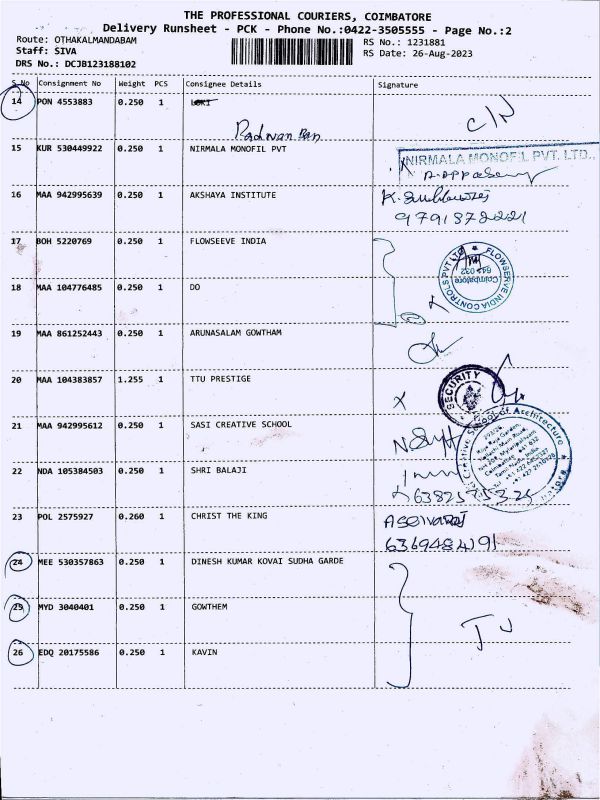 THE PROFESSIONAL COURIERS, COIMBATORE
Delivery Runsheet - PCK - Phone No.:0422-3505555 - Page No.:2
Route: OTHAKALMANDABAM RS No.: 1231881
Staff: SIVA RS Date: 26-Aug-2023
DRS No.: DCJB123188102
S No Consignment No Weight PCS Consignee Details Signature
14 PON 4553883 0.250 1 LOKI C/N
15 KUR 530449922 0.250 1 NIRMALA MONOFIL PVT NIRMALA MONOFIL PVT. LTD.,
16 MAA 942995639 0.250 1 AKSHAYA INSTITUTE
9791872221
17 BOH 5220769 0.250 1 FLOWSEEVE INDIA
FLOWSERVE INDIA CONTROLS PVT LTD
Coimbatore
641 032
18 MAA 104776485 0.250 1 DO
19 MAA 861252443 0.250 1 ARUNASALAM GOWTHAM
20 MAA 104383857 1.255 1 TTU PRESTIGE
SECURITY
21 MAA 942995612 0.250 1 SASI CREATIVE SCHOOL
Creative School of Architecture
22 NDA 105384503 0.250 1 SHRI BALAJI
23 POL 2575927 0.260 1 CHRIST THE KING
6369484191
24 MEE 530357863 0.250 1 DINESH KUMAR KOVAI SUDHA GARDE
25 MYD 3040401 0.250 1 GOWTHEM
26 EDQ 20175586 0.250 1 KAVIN